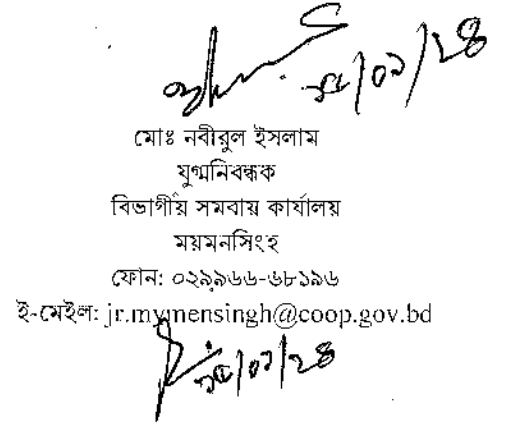 মোঃ নবীরুল ইসলাম
যুগ্মনিবন্ধক
বিভাগীয় সমবায় কার্যালয়
ময়মনসিংহ
ফোন: ০২৯৯৬৬-৬৮১৯৬
ই-মেইল: jr.mymensingh@coop.gov.bd